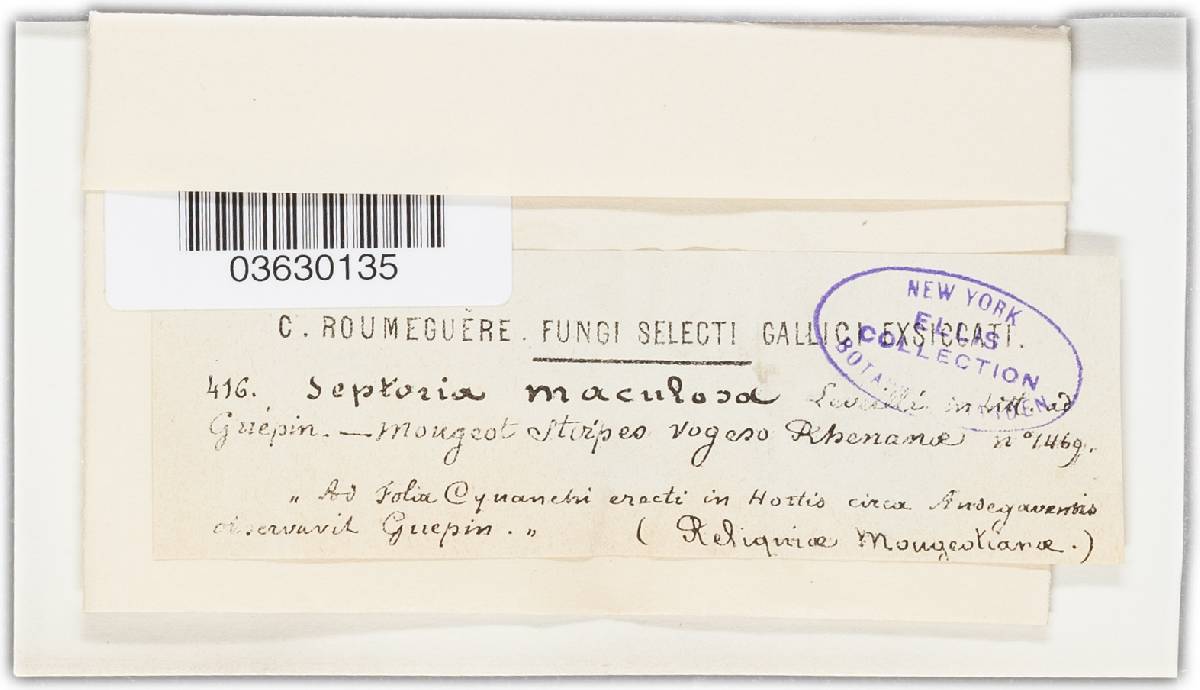 03630135
C. ROUMEGUÈRE. FUNGI SELECTI GALLICI EXSICCATI.
NEW YORK
ELLIS
COLLECTION
BOTANICAL GARDEN
416. Septoria maculosa Leveillé in litt. ad
Guépin. — Mougeot Stirpes Vogeso Rhenanæ n° 1469.
„ Ad Folia Cynanchi erecti in Hortis circa Andegavensis
observavit Guepin. „ (Reliquiæ Mougeotianæ.)